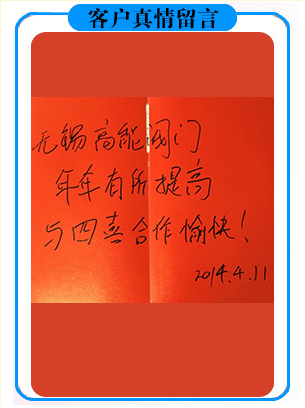 客户真情留言
无锡高能阀门
年年有所提高
与四喜合作愉快!
2014.4.11